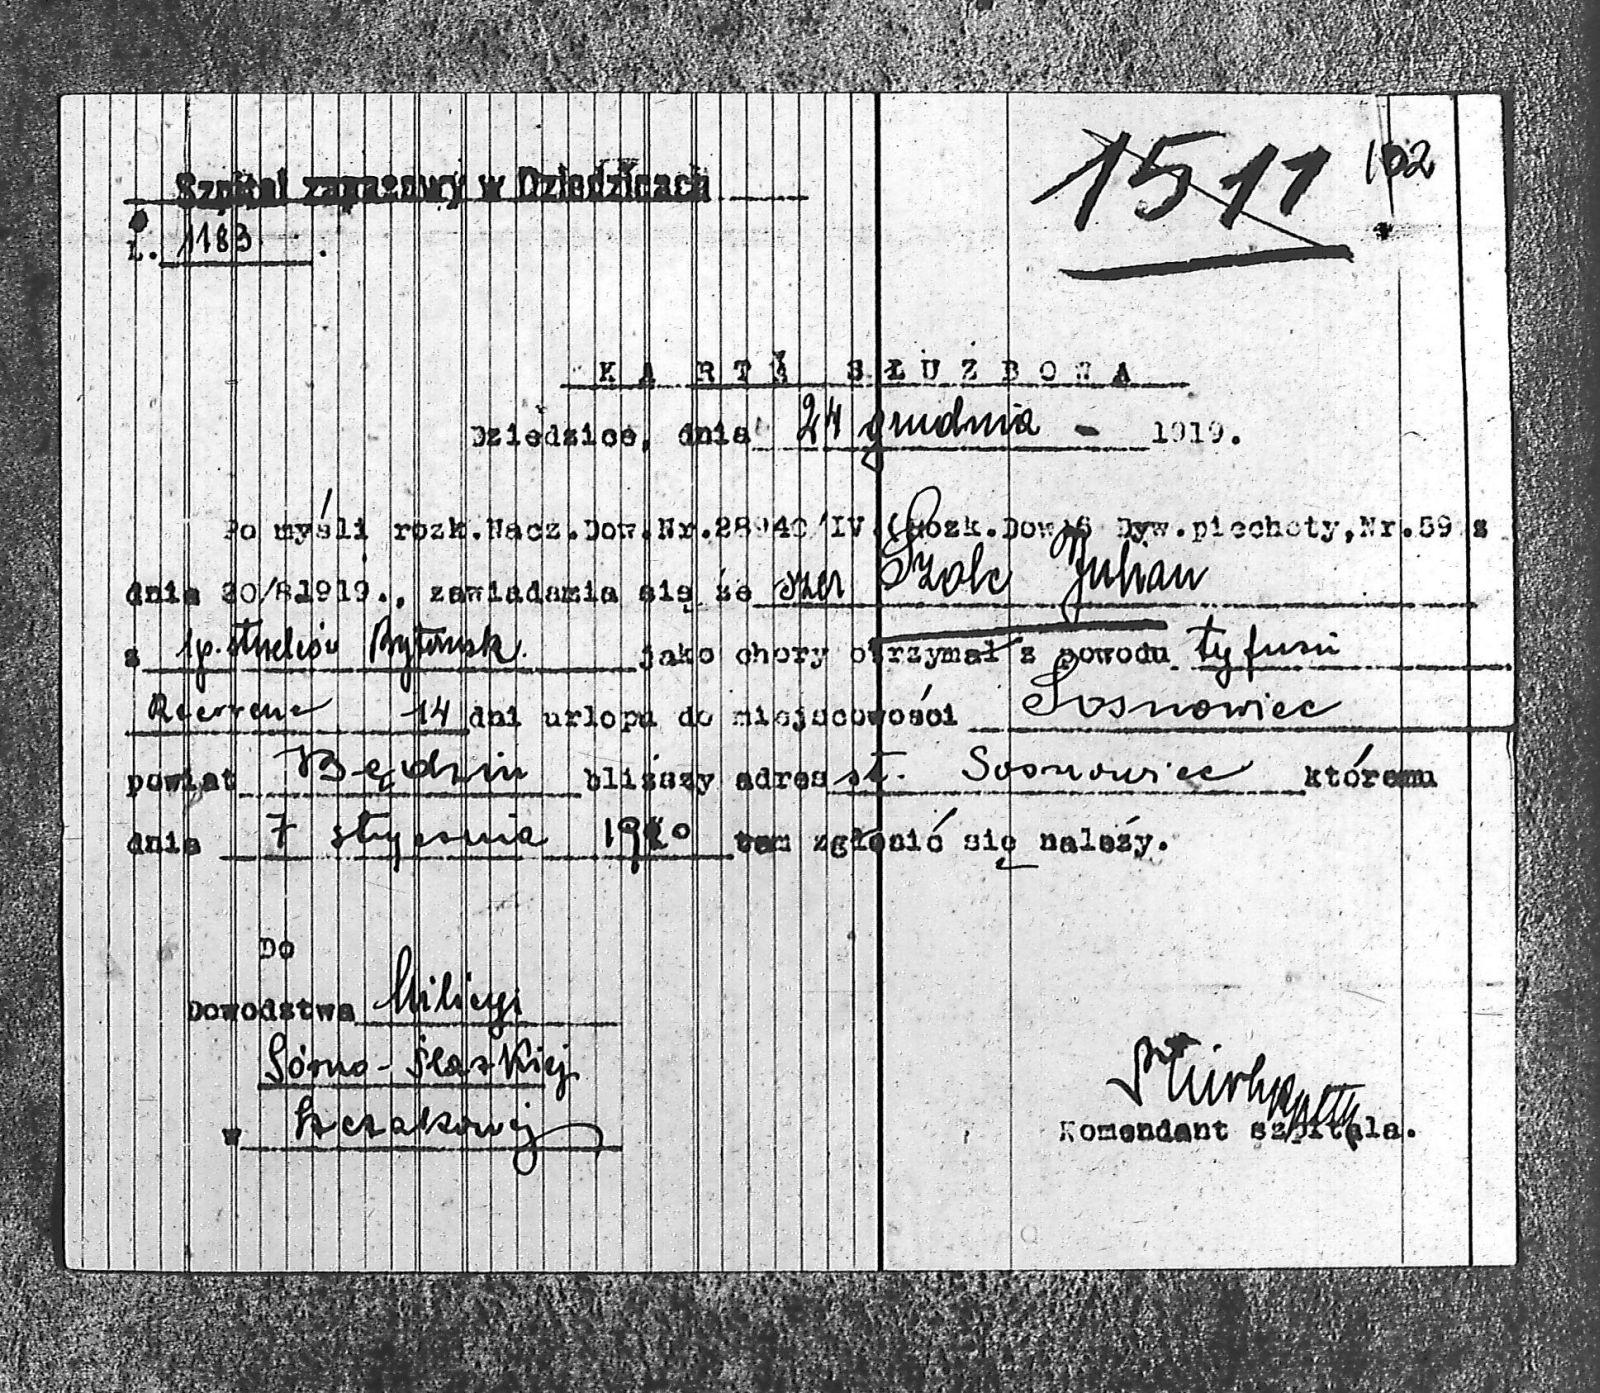 1511 102
Szpital zapasowy w Dziedzicach
L. 1183.
KARTA SŁUŻBOWA
Dziedzice, dnia 24 grudnia - 1919.
Po myśli rozk.Nacz.Dow.Nr.28940/IV.(Rozk.Dow.6 Dyw.piechoty,Nr.59 z
dnia 30/8.1919., zawiadamia się że szer Szolc Julian
z 1p. strzelców Bytomsk. jako chory otrzymał z powodu tyfusu
14 dni urlopu do miejscowości Sosnowiec
powiat Będzin bliższy adres st. Sosnowiec któremu
dnia 7 stycznia 1920 tam zgłosić się należy.
Do
Dowodstwa Milicyi
Górno-Śląskiej
w Szczakowej
Komendant szpitala.